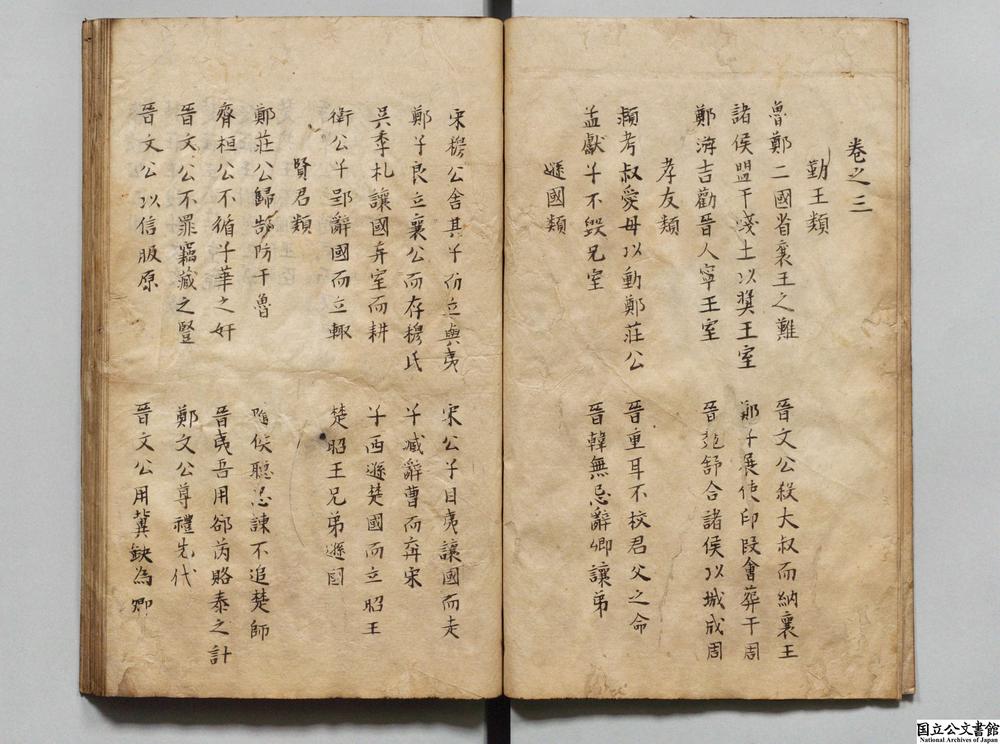 卷之三
勤王類
魯鄭二國省襄王之難 晉文公殺大叔而納襄王
諸侯盟于踐土以獎王室 鄭子展使印段會葬于周
鄭游吉勸晉人寧王室 晉魏舒合諸侯以城成周
孝友類
潁考叔愛母以動鄭莊公 晉重耳不校君父之命
孟獻子不毀兄室 晉韓無忌辭卿讓弟
遜國類
宋穆公舍其子而立與夷 宋公子目夷讓國而走
鄭子良立襄公而存穆氏 子臧辭曹而奔宋
吳季札讓國弃室而耕 子西遜楚國而立昭王
衛公子郢辭國而立輒 楚昭王兄弟遜國
賢君類
鄭莊公歸郜防于魯 隨侯聽忌諫不追楚師
齊桓公不循子華之奸 晉夷吾用郤芮賂秦之計
晉文公不罪竊藏之豎 鄭文公尊禮先代
晉文公以信服原 晉文公用冀缺為卿
国立公文書館
National Archives of Japan